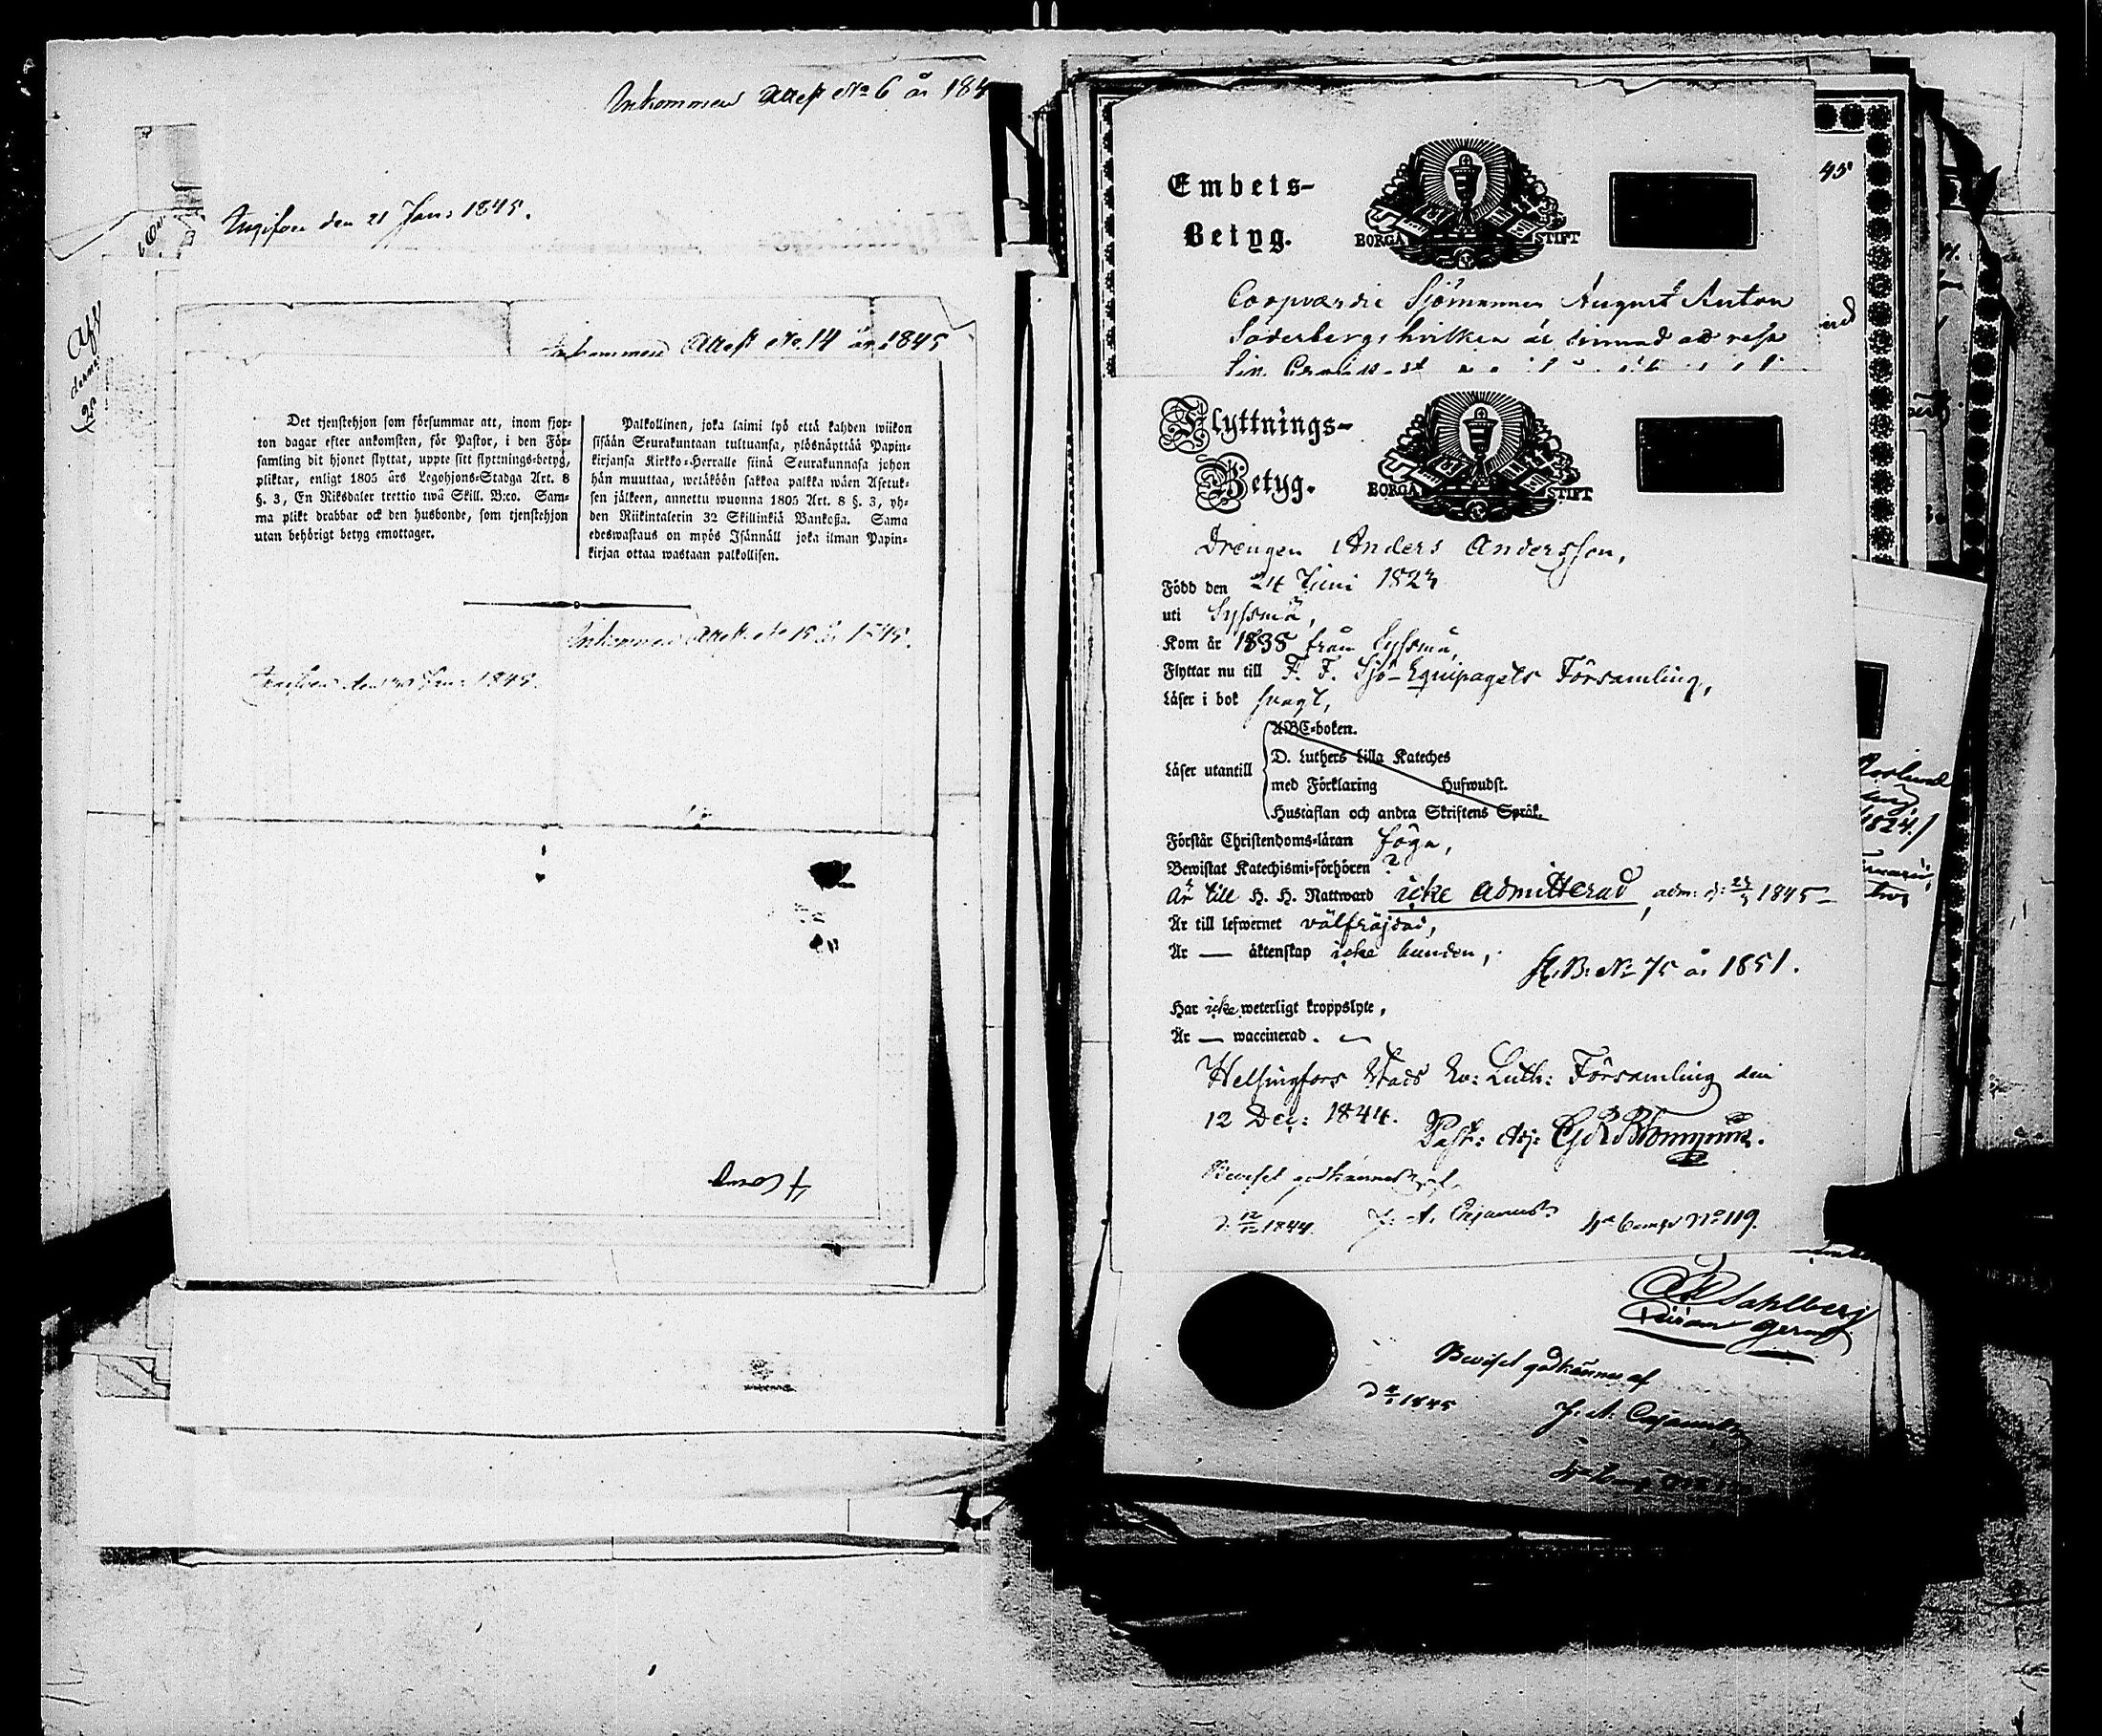 Inkommen Attest No 6 år 184
Angifven den 21 Jan: 1845.
Inkommen Attest No 14 år 1845
Det tjenstehjon som försummar att, inom fjor-
ton dagar efter ankomsten, för Pastor, i den För-
samling dit hjonet flyttat, uppte sitt flyttnings-betyg,
pliktar, enligt 1805 års Legohjons-Stadga Art. 8
§. 3, En Riksdaler trettio twå Skill. B:co. Sam-
ma plikt drabbar ock den husbonde, som tjenstehjon
utan behörigt betyg emottager.
Palkollinen, joka laimi lyö että kahden wiikon
sisään Seurakuntaan tultuansa, ylösnäyttää Papin-
kirjansa Kirkko-Herralle siinä Seurakunnasa johon
hän muuttaa, wetäköön sakkoa palkka wäen Asetuk-
sen jälkeen, annettu wuonna 1805 Art. 8 §. 3, yh-
den Riikintalerin 32 Skillinkiä Bankoßa. Sama
edeswastaus on myös Isännäll joka ilman Papin-
kirjaa ottaa wastaan palkollisen.
Inkommen Attest No 15 år 1845.
den 30 Jan: 1845.
4 Comp
Embets-
Betyg.
BORGÅ STIFT
45
Coopværdie Sjömannen August Anton
Söderberg, hvilken är sinnad att resa
Flyttnings-
Betyg.
BORGÅ STIFT
Drengen Anders Andersson,
Född den 24 Juni 1823
uti Syssmä,
Kom år 1838 från Syssmä,
Flyttar nu till F. F. Sjö-Equipagets Församling,
Läser i bok svagt,
ABC-boken.
D. Luthers Lilla Kateches
Läser utantill
med Förklaring Hufwudst.
Hustaflan och andra Skriftens Språk.
Förstår Christendoms-läran föga,
Bewistat Katechismi-förhören ?
Är till H. H. Nattward icke admitterad, adm: d: 1845
Är till lefwernet välfräjdad,
Är — äktenskap icke bunden,
A. B: No 75 år 1851.
Har icke weterligt kroppslyte,
Är — waccinerad.
Helsingfors Stads Ev: Luth: Församling den
12 Dec: 1844.
Past: Adj:
Beviset godkännes af
d: 12/12 1844. J: A. Cajanus
4e Comp No 119.
Sahlberg
Beviset godkännes af
1845
J: A: Cajanus
1824.